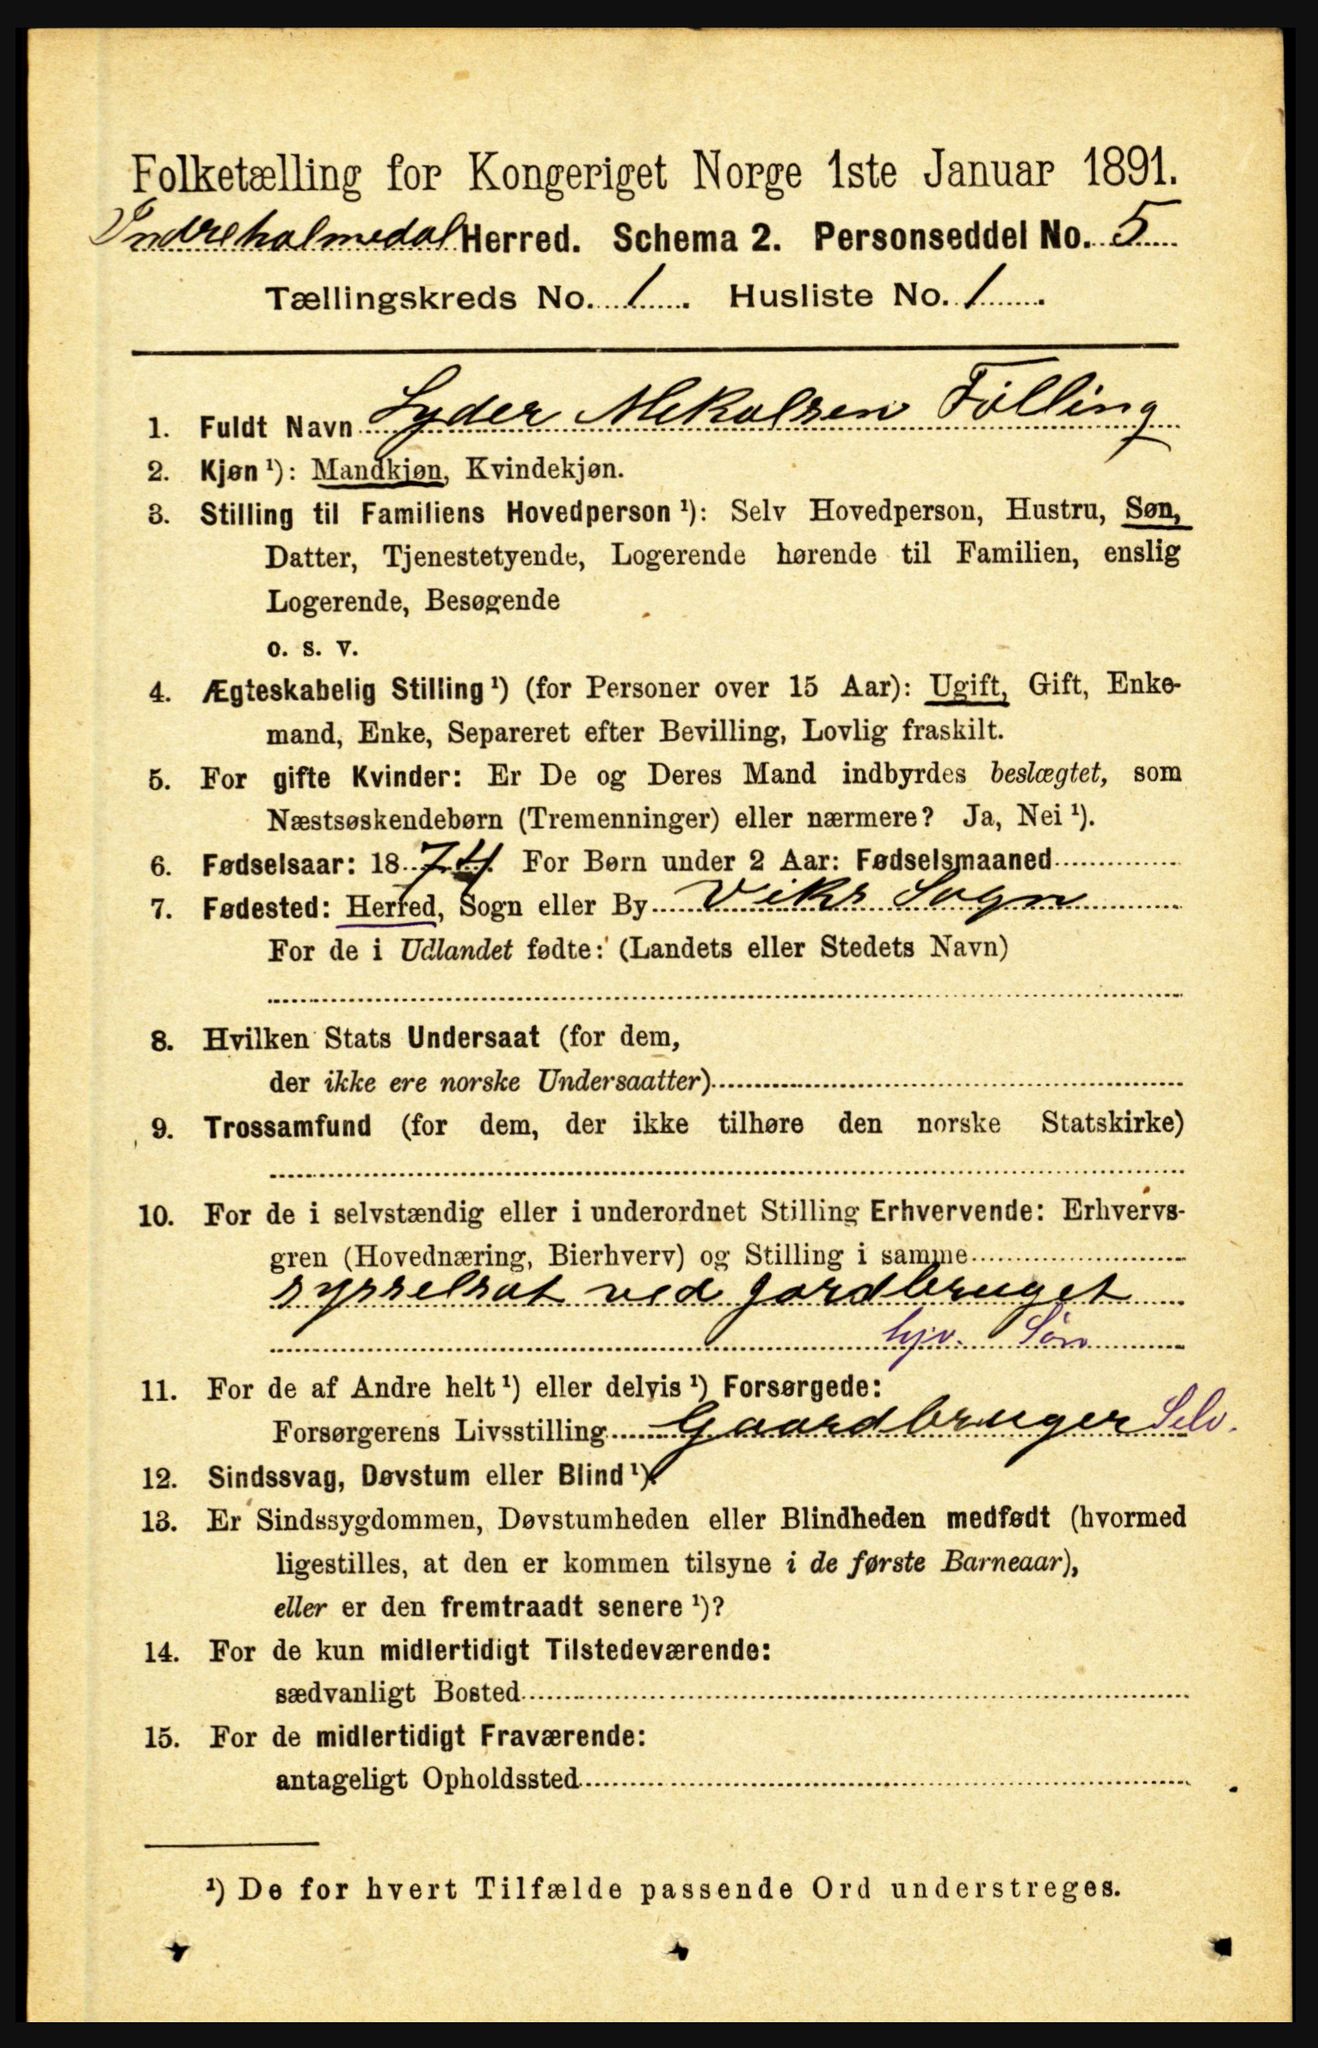 Folketælling for Kongeriget Norge 1ste Januar 1891.
Indreholmedal Herred. Schema 2. Personseddel No. 5
Tællingskreds No. 1. Husliste No. 1.
1. Fuldt Navn Lyder Mekalsen Følling
2. Kjøn ¹): Mandkjøn, Kvindekjøn.
3. Stilling til Familiens Hovedperson ¹): Selv Hovedperson, Hustru, Søn,
Datter, Tjenestetyende, Logerende hørende til Familien, enslig
Logerende, Besøgende
o. s. v.
4. Ægteskabelig Stilling ¹) (for Personer over 15 Aar): Ugift, Gift, Enke-
mand, Enke, Separeret efter Bevilling, Lovlig fraskilt.
5. For gifte Kvinder: Er De og Deres Mand indbyrdes beslægtet, som
Næstsøskendebørn (Tremenninger) eller nærmere? Ja, Nei ¹).
6. Fødselsaar: 1874. For Børn under 2 Aar: Fødselsmaaned
7. Fødested: Herred, Sogn eller By Viks Sogn
For de i Udlandet fødte: (Landets eller Stedets Navn)
8. Hvilken Stats Undersaat (for dem,
der ikke ere norske Undersaatter)
9. Trossamfund (for dem, der ikke tilhøre den norske Statskirke)
10. For de i selvstændig eller i underordnet Stilling Erhvervende: Erhvervs-
gren (Hovednæring, Bierhverv) og Stilling i samme
sysselsat ved jordbruget
hjv. Søn
11. For de af Andre helt ¹) eller delvis ¹) Forsørgede:
Forsørgerens Livsstilling Gaardbruger Selv.
12. Sindssvag, Døvstum eller Blind ¹).
13. Er Sindssygdommen, Døvstumheden eller Blindheden medfødt (hvormed
ligestilles, at den er kommen tilsyne i de første Barneaar),
eller er den fremtraadt senere ¹)?
14. For de kun midlertidigt Tilstedeværende:
sædvanligt Bosted
15. For de midlertidigt Fraværende:
antageligt Opholdssted
¹) De for hvert Tilfælde passende Ord understreges.